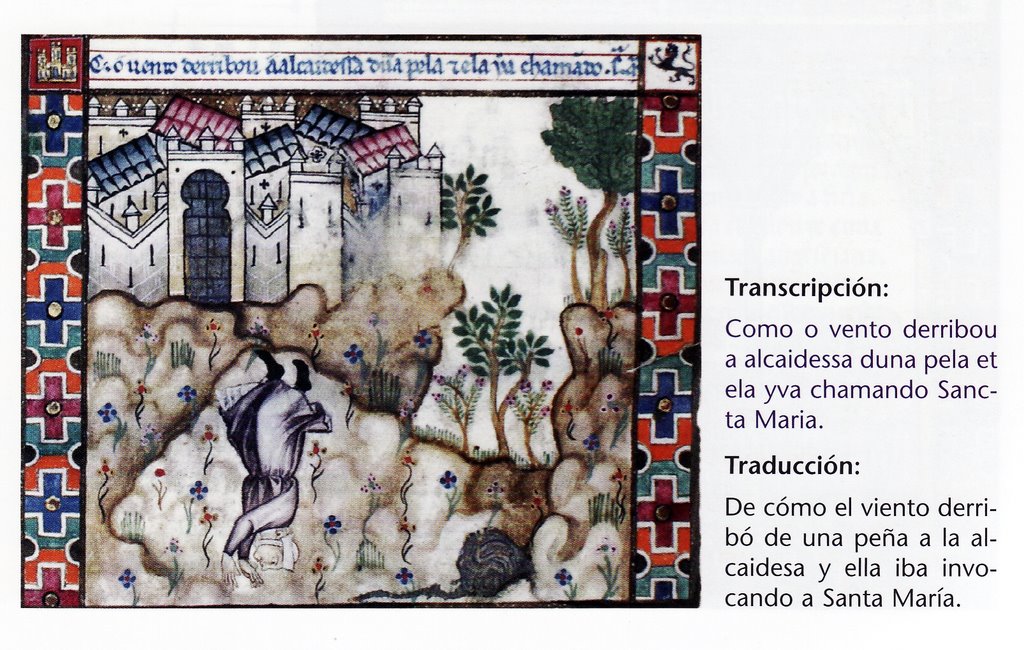 C. o uento derribou a alcaidessa duna pela ⁊ ela yua chamãdo. S.ª
Transcripción:
Como o vento derribou
a alcaidessa duna pela et
ela yva chamando Sanc-
ta Maria.
Traducción:
De cómo el viento derri-
bó de una peña a la al-
caidesa y ella iba invo-
cando a Santa María.